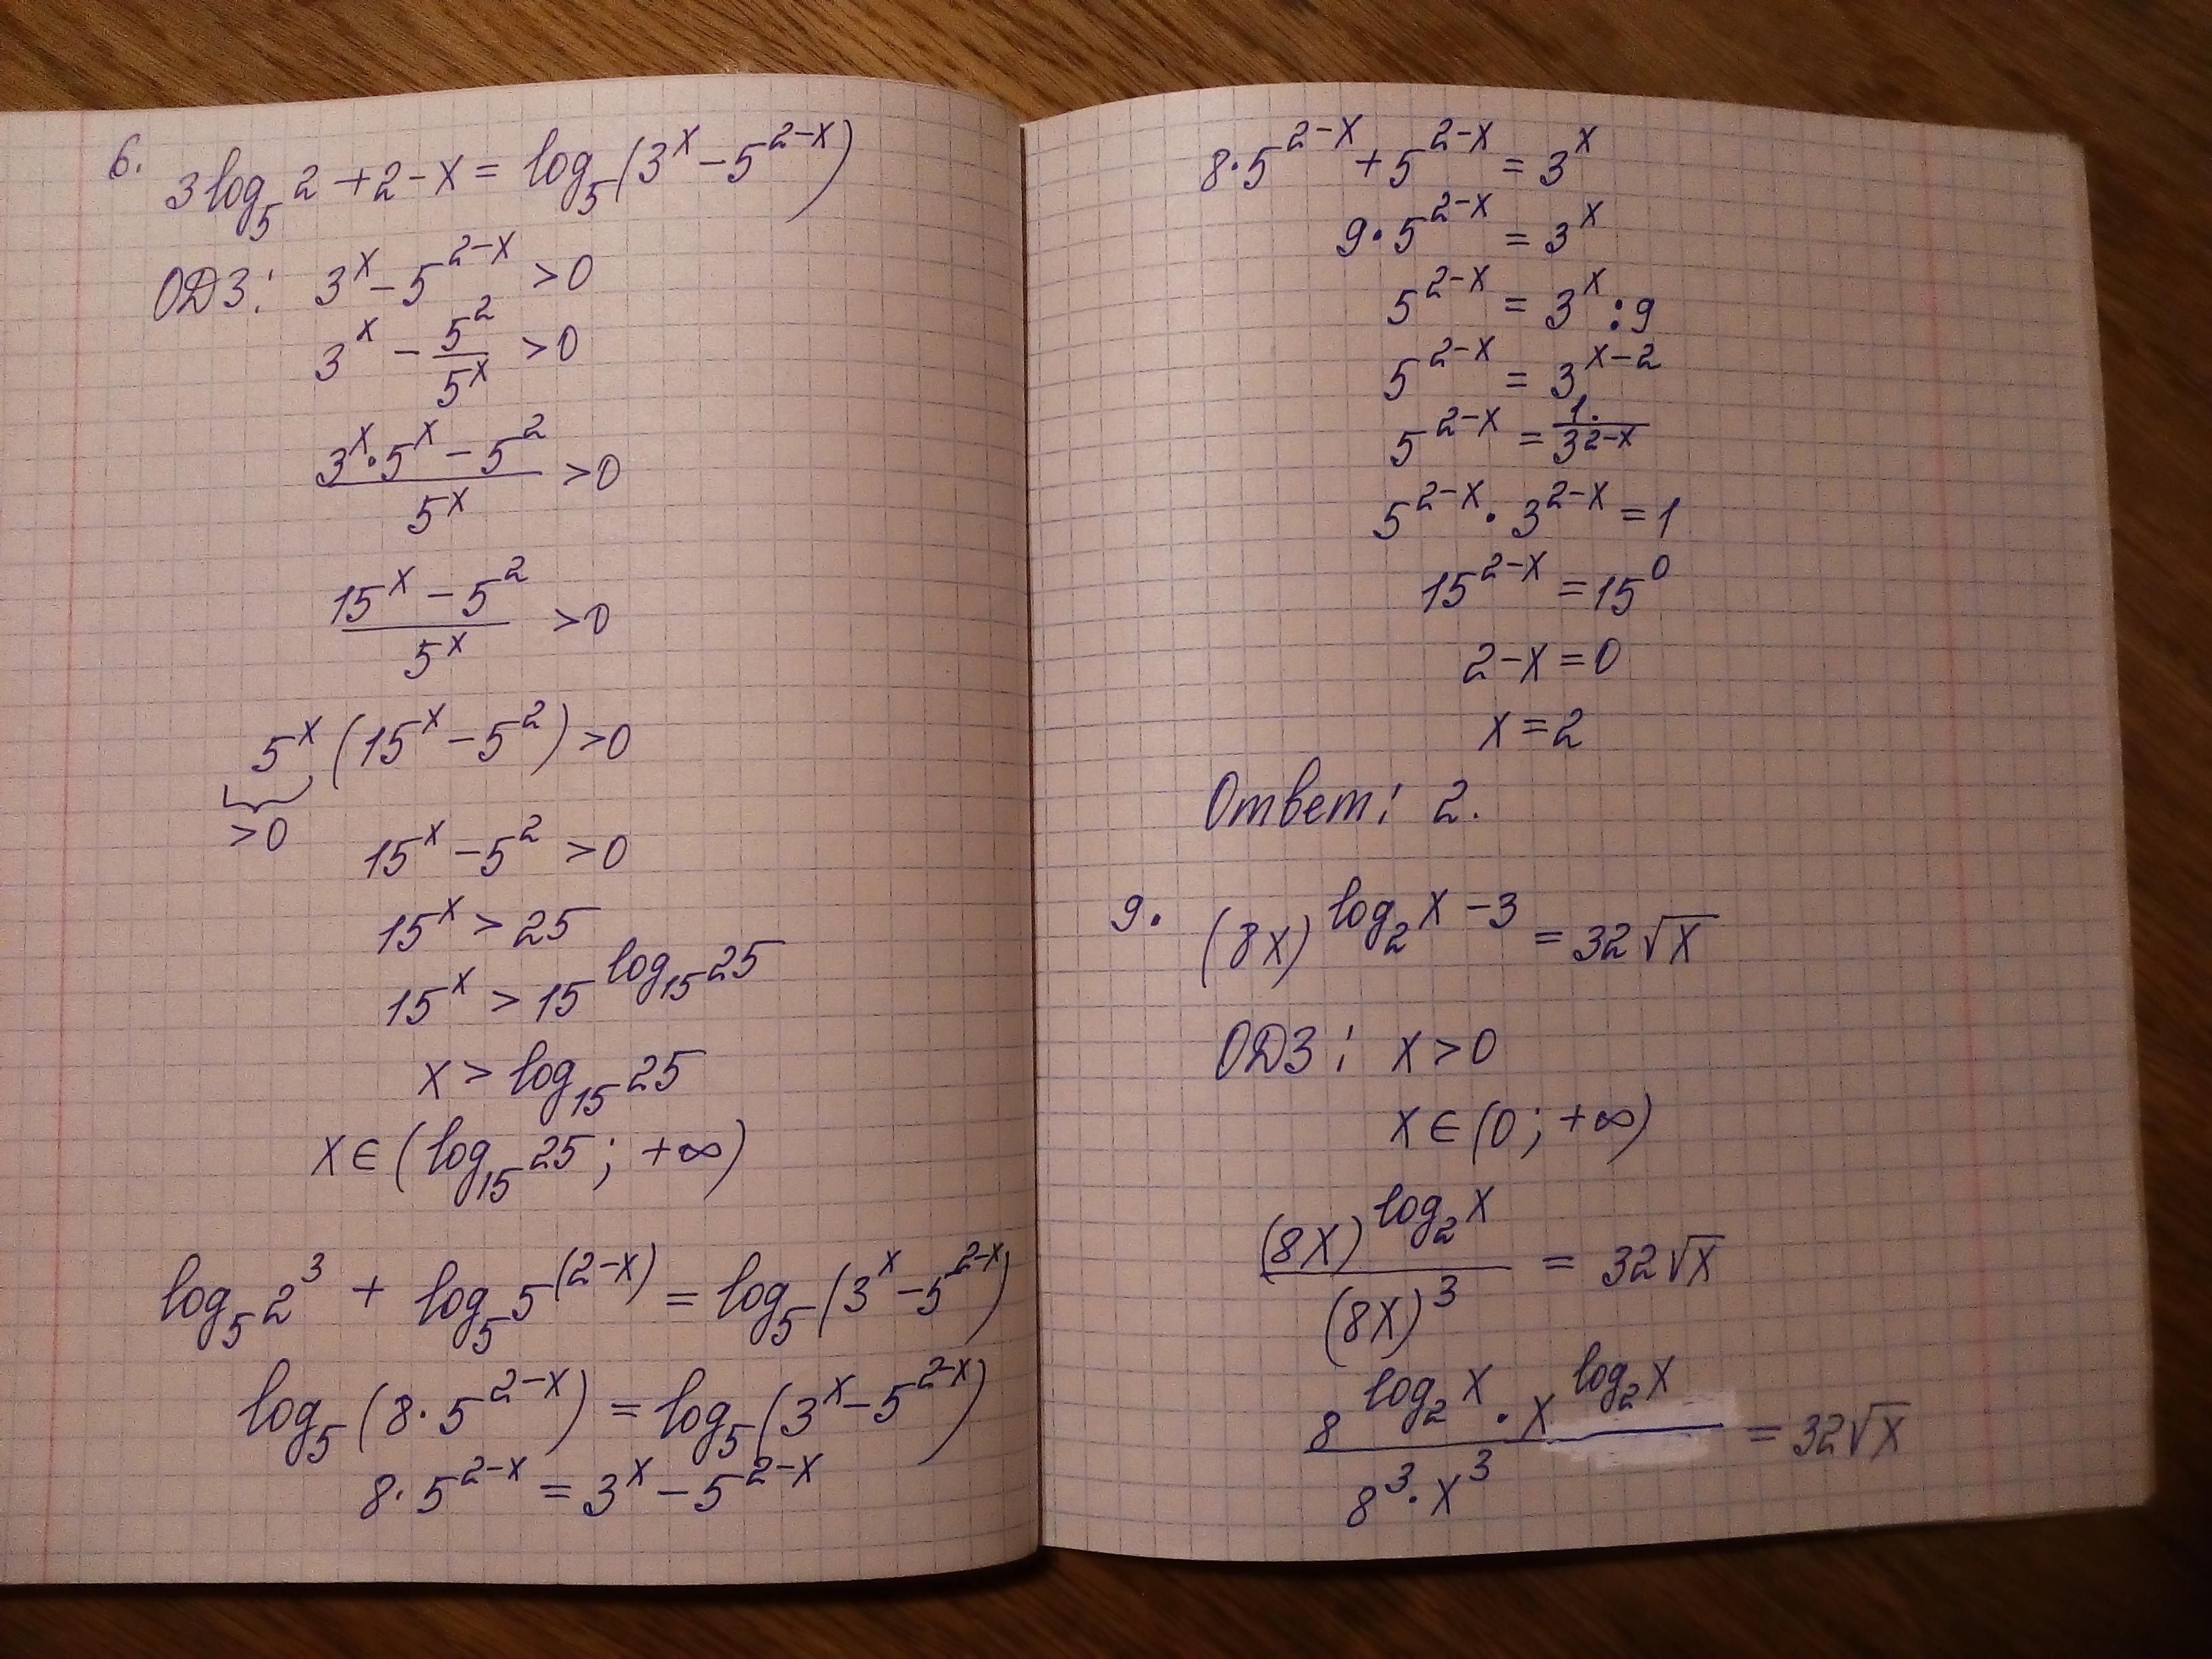 6. 3log₅2 + 2 - x = log₅(3ˣ - 5²⁻ˣ)
ОДЗ: 3ˣ - 5²⁻ˣ > 0
3ˣ - 5²/5ˣ > 0
(3ˣ · 5ˣ - 5²)/5ˣ > 0
(15ˣ - 5²)/5ˣ > 0
5ˣ (15ˣ - 5²) > 0
> 0
15ˣ - 5² > 0
15ˣ > 25
15ˣ > 15^(log₁₅25)
x > log₁₅25
x ∈ (log₁₅25; +∞)
log₅2³ + log₅5⁽²⁻ˣ⁾ = log₅(3ˣ - 5²⁻ˣ)
log₅(8 · 5²⁻ˣ) = log₅(3ˣ - 5²⁻ˣ)
8 · 5²⁻ˣ = 3ˣ - 5²⁻ˣ
8 · 5²⁻ˣ + 5²⁻ˣ = 3ˣ
9 · 5²⁻ˣ = 3ˣ
5²⁻ˣ = 3ˣ : 9
5²⁻ˣ = 3ˣ⁻²
5²⁻ˣ = 1/3²⁻ˣ
5²⁻ˣ · 3²⁻ˣ = 1
15²⁻ˣ = 15⁰
2 - x = 0
x = 2
Ответ: 2.
9. (8x)^(log₂x - 3) = 32√x
ОДЗ: x > 0
x ∈ (0; +∞)
(8x)^(log₂x)/(8x)³ = 32√x
(8^(log₂x) · x^(log₂x))/(8³ · x³) = 32√x